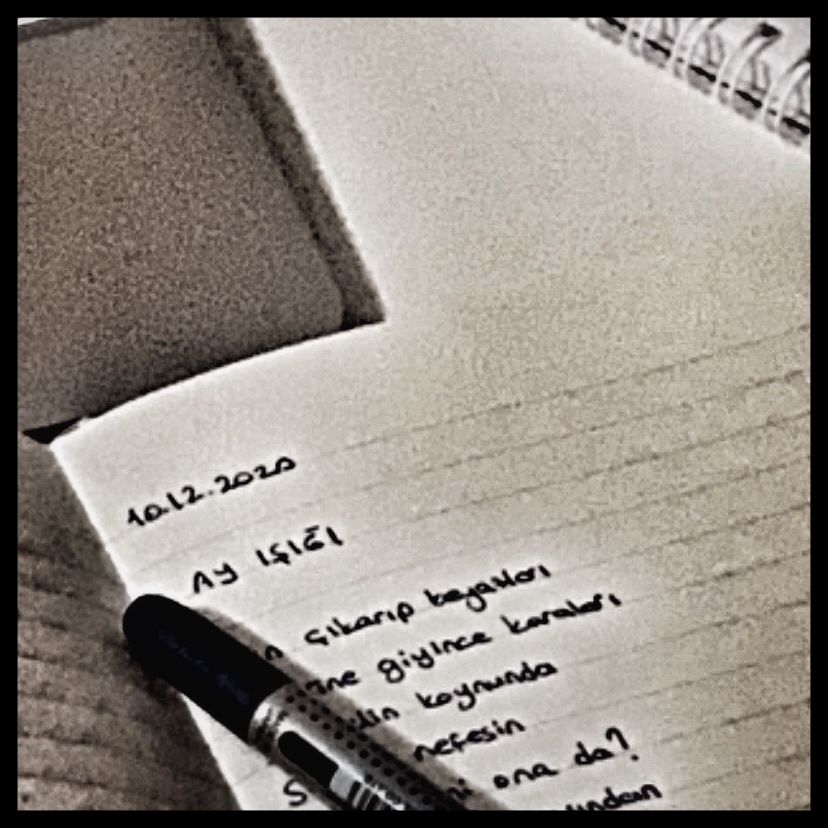 10.12.2020
AY IŞIĞI
çıkarıp beyazları
giyince karaları
koynunda
nefesin
ona da?